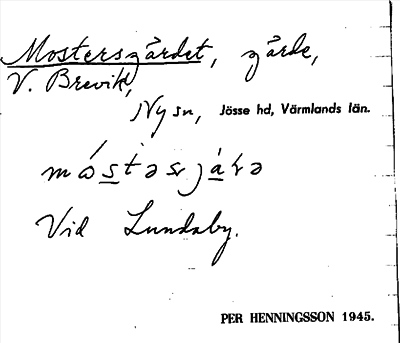 Mostersgärdet, gärde,
V. Brevik,
Ny sn, Jösse hd, Värmlands län.
Vid Lundsby.
PER HENNINGSSON 1945.